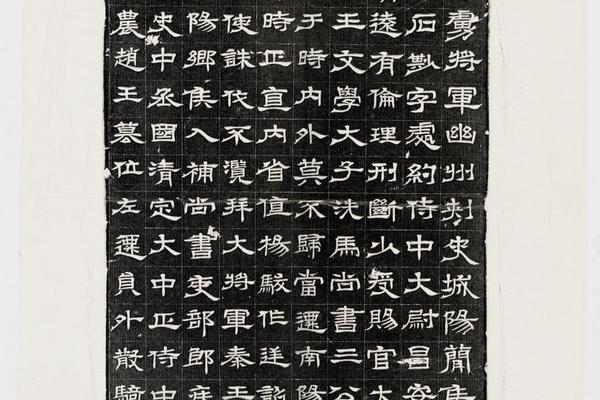 虜將軍幽州刾史城陽簡侯
石尠字處約侍中大尉昌安
遠有倫理刑斷少受賜官大
王文學大子洗馬尚書三公
于時內外莫不歸當遷南陽
時正直內省值楊駿作逆詔
使誅伐不濫拜大將軍秦王
陽鄉侯入補尚書吏部郎疾
史中丞國清定大中正侍中
農趙王篡位左遷員外散騎